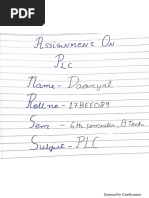 ASSIGNMENT ON
PLC
Name- Daanyal
Rollno.- 17BEE089
Sem - 6th semester, B.Tech
Subject - PLC
Scanned by CamScanner